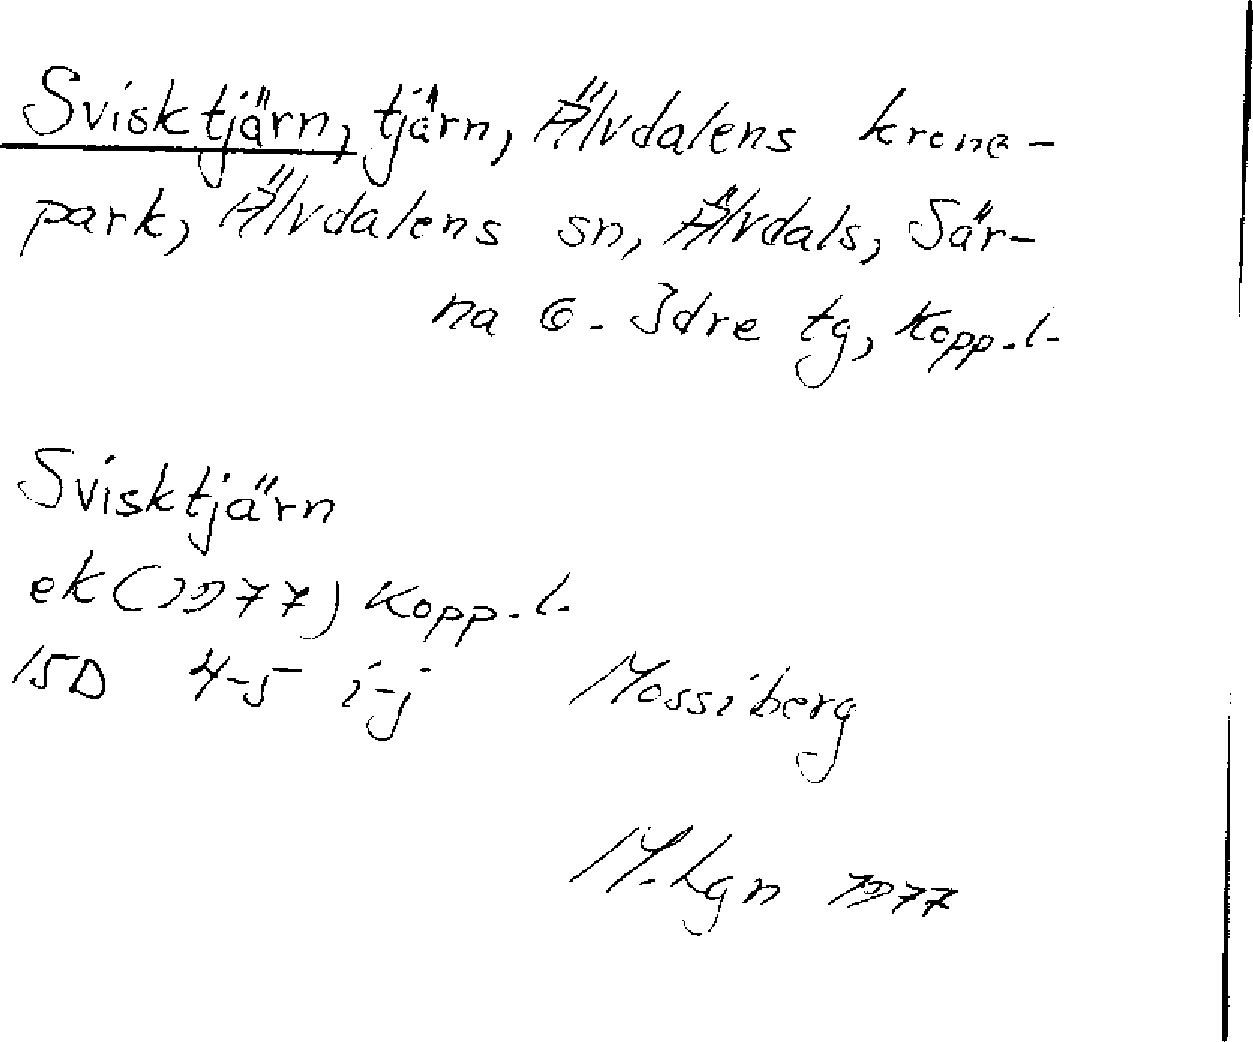 Svisktjärn, tjärn, Älvdalens krono-
park, Älvdalens sn, Älvdals, Sär-
na o. Idre tg, Kopp.l.
Svisktjärn
ek (1977) Kopp.l.
15D 4-5 i-j Mossiberg
M.Lgn 1977